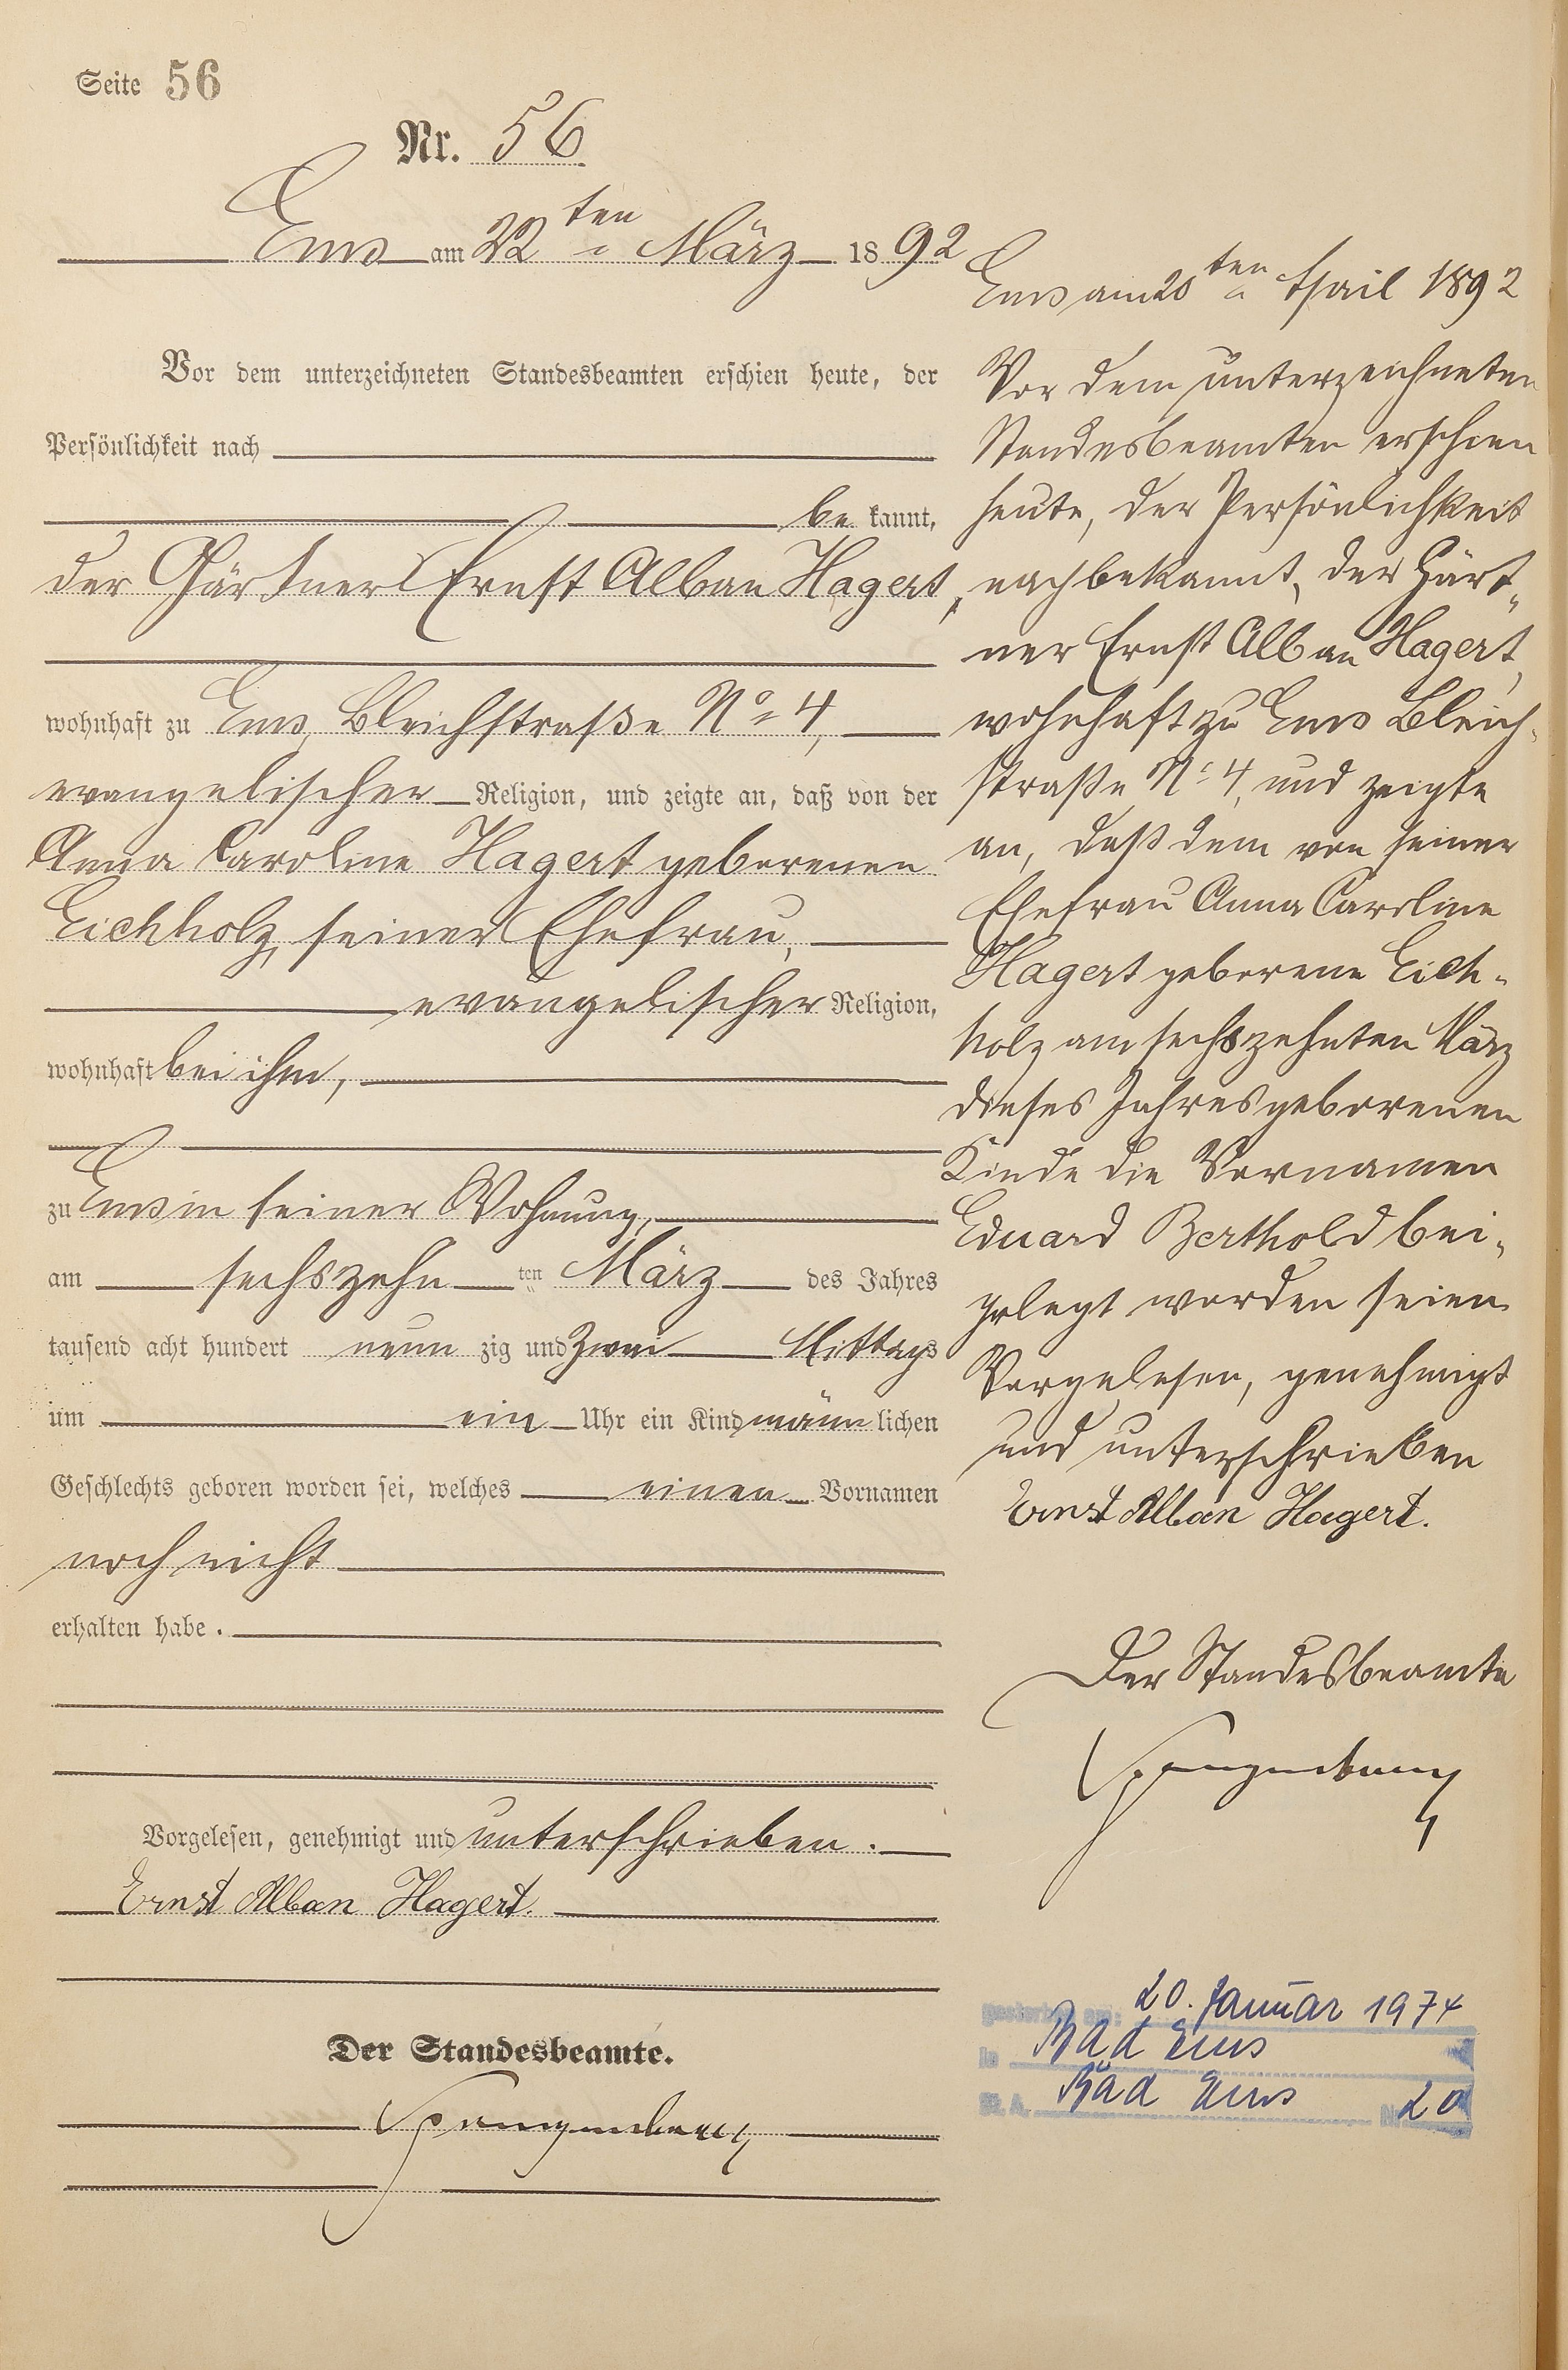 Seite 56
Nr. 56
Ems am 22ten März 1892
Vor dem unterzeichneten Standesbeamten erschien heute, der
Persönlichkeit nach
be kannt,
der Gärtner Ernst Alban Hagert,
wohnhaft zu Ems, Bleichstraße No 4,
evangelischer Religion, und zeigte an, daß von der
Anna Caroline Hagert geborenen
Eichholz, seiner Ehefrau,
evangelischer Religion,
wohnhaft bei ihm,
zu Ems in seiner Wohnung,
am sechszehn ten März des Jahres
tausend acht hundert neun zig und zwei Mittags
um ein Uhr ein Kind männlichen
Geschlechts geboren worden sei, welches einen Vornamen
noch nicht
erhalten habe.
Vorgelesen, genehmigt und unterschrieben.
Ernst Alban Hagert.
Der Standesbeamte.
Spangenberg
Ems am 20ten April 1892
Vor dem unterzeichneten
Standesbeamten erschien
heute, der Persönlichkeit
nach bekannt, der Gärt„
ner Ernst Alban Hagert,
wohnhaft zu Ems Bleich„
straße No 4, und zeigte
an, daß dem von seiner
Ehefrau Anna Caroline
Hagert geborene Eich„
holz am sechszehnten März
dieses Jahres geborenen
Kinde die Vornamen
Eduard Berthold bei„
gelegt worden seien
Vorgelesen, genehmigt
und unterschrieben
Ernst Alban Hagert.
Der Standesbeamte
Spangenberg
gestorben am: 20. Januar 1974
in Bad Ems
St. A. Bad Ems Nr. 20